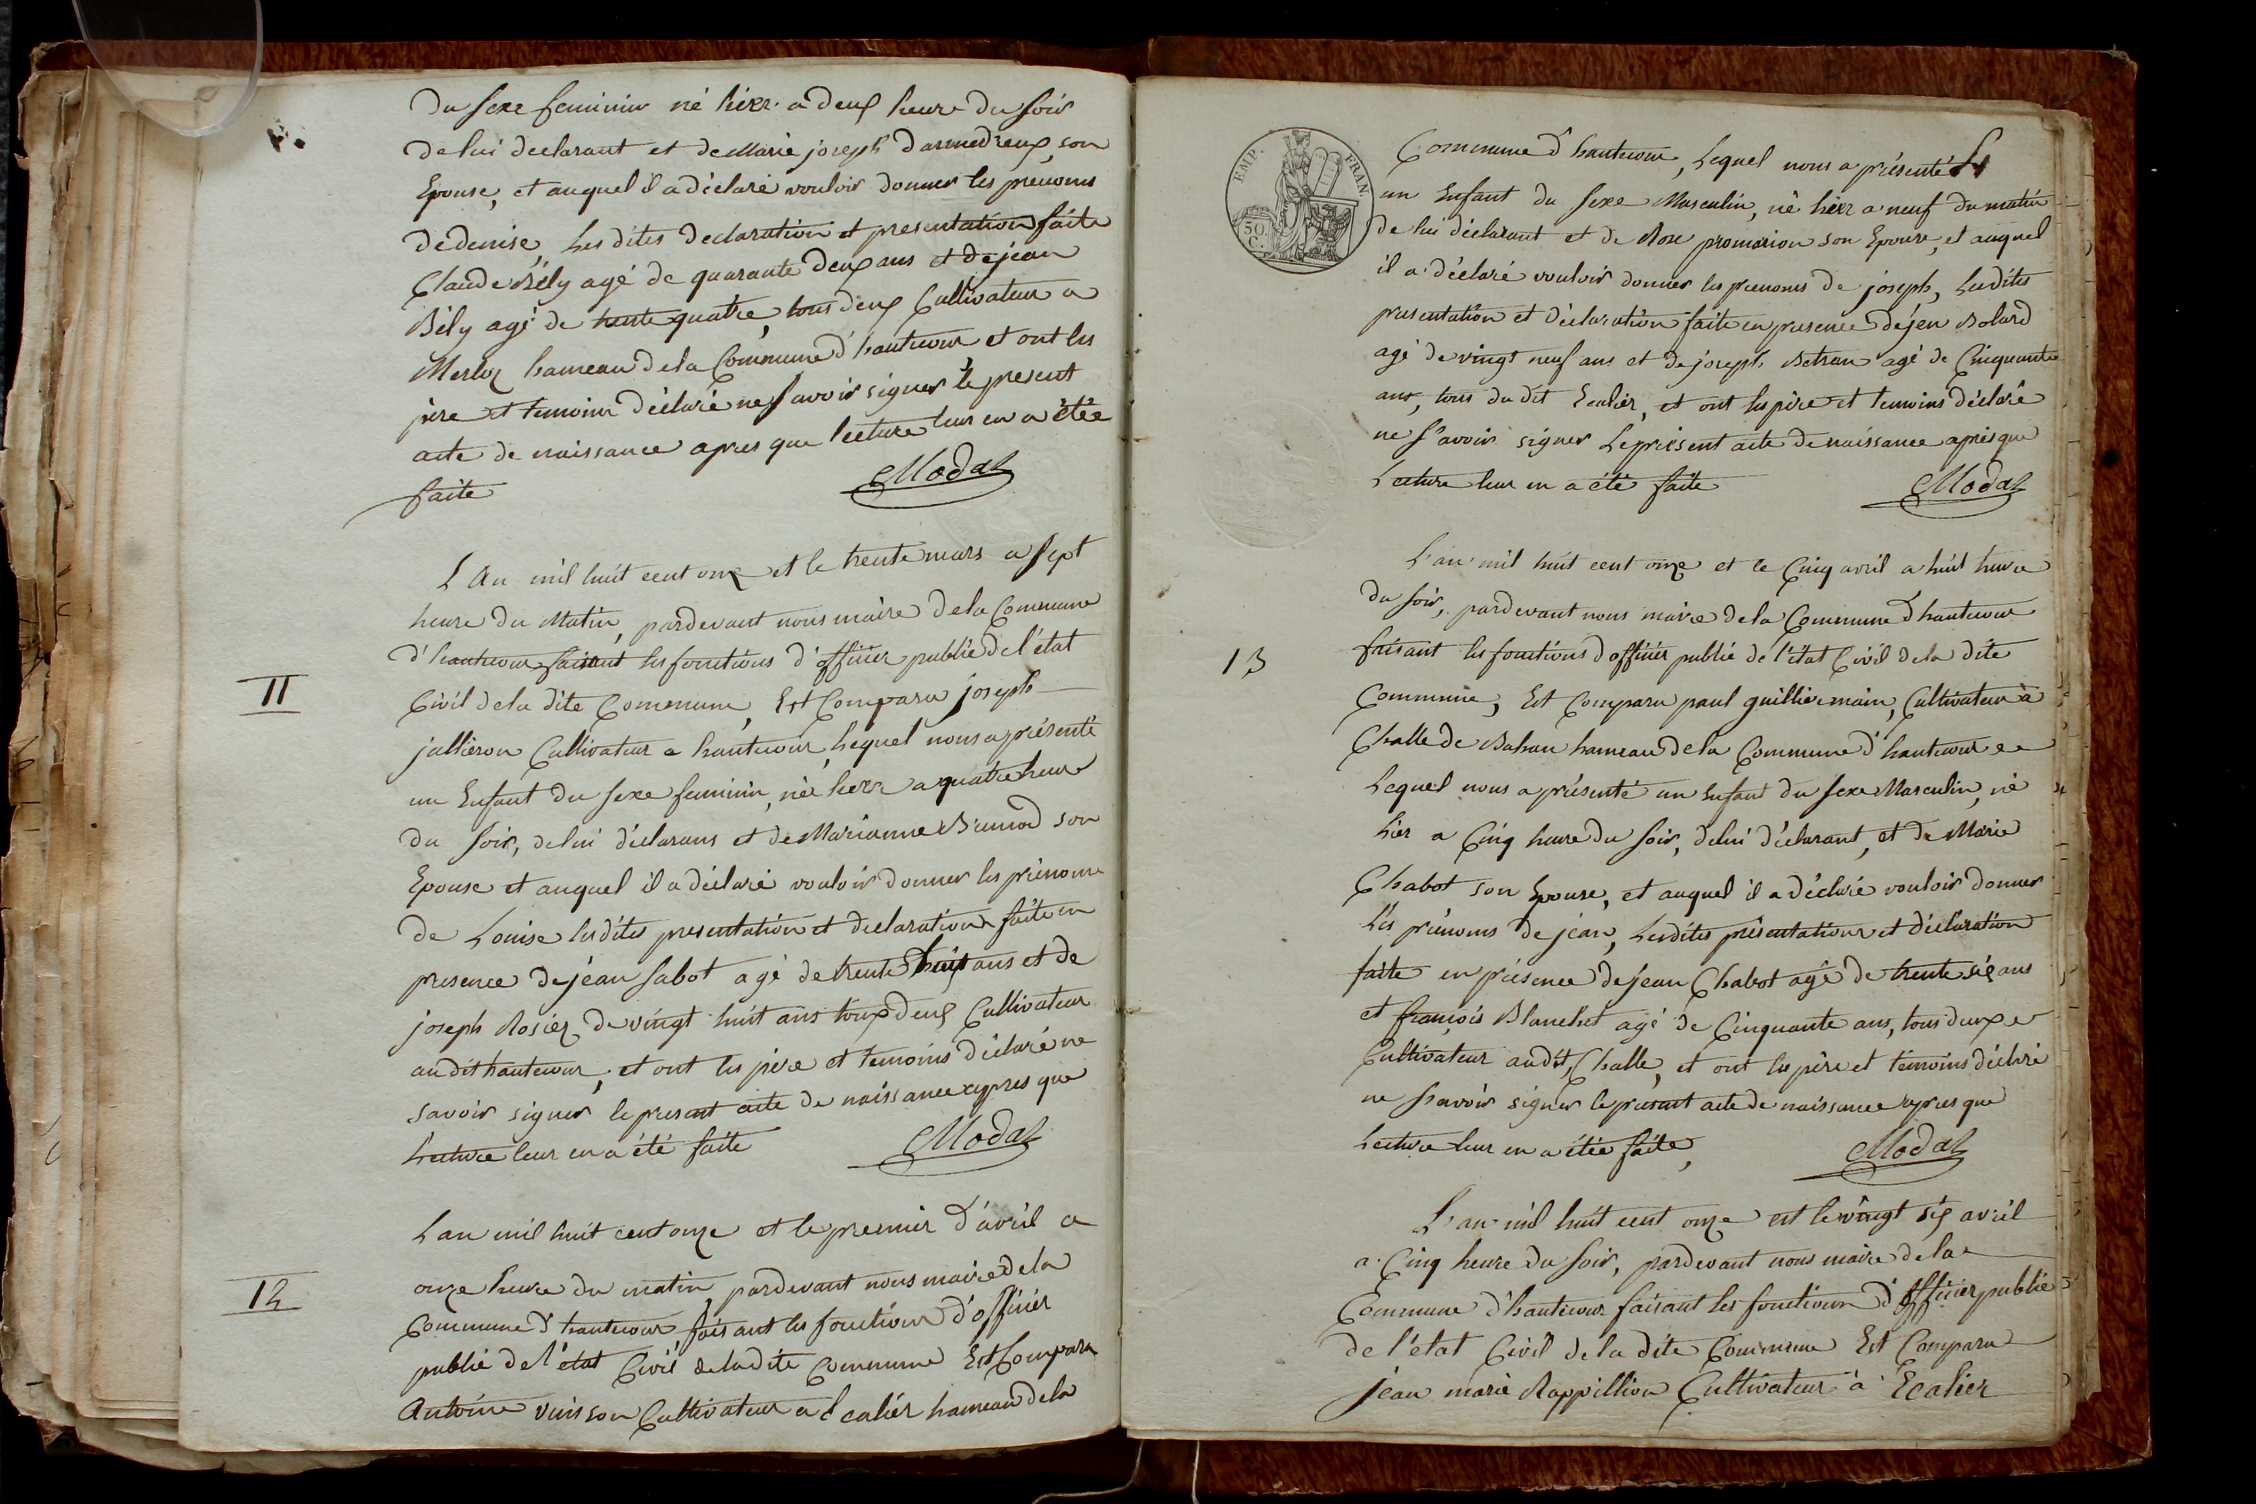 du sexe feminin né hier a deux heure du soir
de lui declarant et de Marie joseph darmedreux, son
Epouse, et auquel il a déclaré vouloir donner les prenoms
de denise, Les dites declaration et presentation faite
Claude Bély agé de quarante deux ans et de jean
Bély agé de trente quatre, tous deux Cultivateur a
Merloz hameau de la Commune d'hautecour et ont les
père et temoins déclaré ne savoir signer le present
acte de naissance apres que lecture leur en a étée
faite
Modaz
L'An mil huit cent onze et le trente mars a sept
heure du Matin, pardevant nous maire de la Commune
d'hautecour faisant les fonctions d'officier public de l'état
II
Civil de la dite Commune, Est Comparu joseph
jallieron Cultivateur a hautecour, lequel nous a présenté
un Enfant du sexe feminin, né hier a quatre heure
du soir, de lui déclarans et de Marianne Brunod son
Epouse et auquel il a déclaré vouloir donner les prénoms
de Louise les dites presentation et declaration faite en
presence de jean Sabot agé de trente huit ans et de
joseph Rosier de vingt huit ans tous deux Cultivateur
audit hautecour, et ont les père et temoins déclaré ne
savoir signer le present acte de naissance apres que
Lecture leur en a été faite
Modaz
L'an mil huit cent onze et le premier d'avril a
12
onze heure du matin, pardevant nous maire de la
Commune d'hautecour, faisant les fonctions d'officier
public de l'état Civil de la dite Commune Est Comparu
Antoine vuisson Cultivateur a Ecalier hameau de la
EMP. FRAN.
50 C.
Commune d'hautecour, Lequel nous a présenté
un Enfant du sexe Masculin, né hier a neuf du matin
de lui déclarant et de Rose promorion son Epouse, et auquel
il a déclaré vouloir donner les prenoms de joseph, Les dites
presentation et déclaration faite en presence de jen Bolard
agé de vingt neuf ans et de joseph Betran agé de Cinquante
ans, tous du dit Ecalier, et ont les père et temoins déclaré
ne savoir signer Le présent acte de naissance après que
Lecture leur en a été faite
Modaz
L'an mil huit cent onze et le Cinq avril a huit heure
du soir, pardevant nous maire de la Commune d'hautecour
13
faisant les fonctions d'officier public de l'état Civil de la dite
Commune, Est Comparu paul guilliermain, Cultivateur à
Challe de Bohan hameau de la Commune d'hautecour
Lequel nous a présenté un Enfant du sexe Masculin, né
hier a Cinq heure du soir, de lui déclarant, et de Marie
Chabot son Epouse, et auquel il a déclaré vouloir donner
Les prénoms de jean, Les dites présentation et déclaration
faite en présence de jean Chabot agé de trente six ans
et françois Blanchet agé de Cinquante ans, tous deux
Cultivateur audit, Challe, et ont les père et temoins déclaré
ne savoir signer le present acte de naissance apres que
Lecture leur en a étée faite,
Modaz
L'an mil huit cent onze est le vingt six avril
a Cinq heure du soir, pardevant nous maire de la
Commune d'hautecour faisant les fonctions d'officier public
de l'état Civil de la dite Commune Est Comparu
jean marie Rappillion Cultivateur à Ecalier